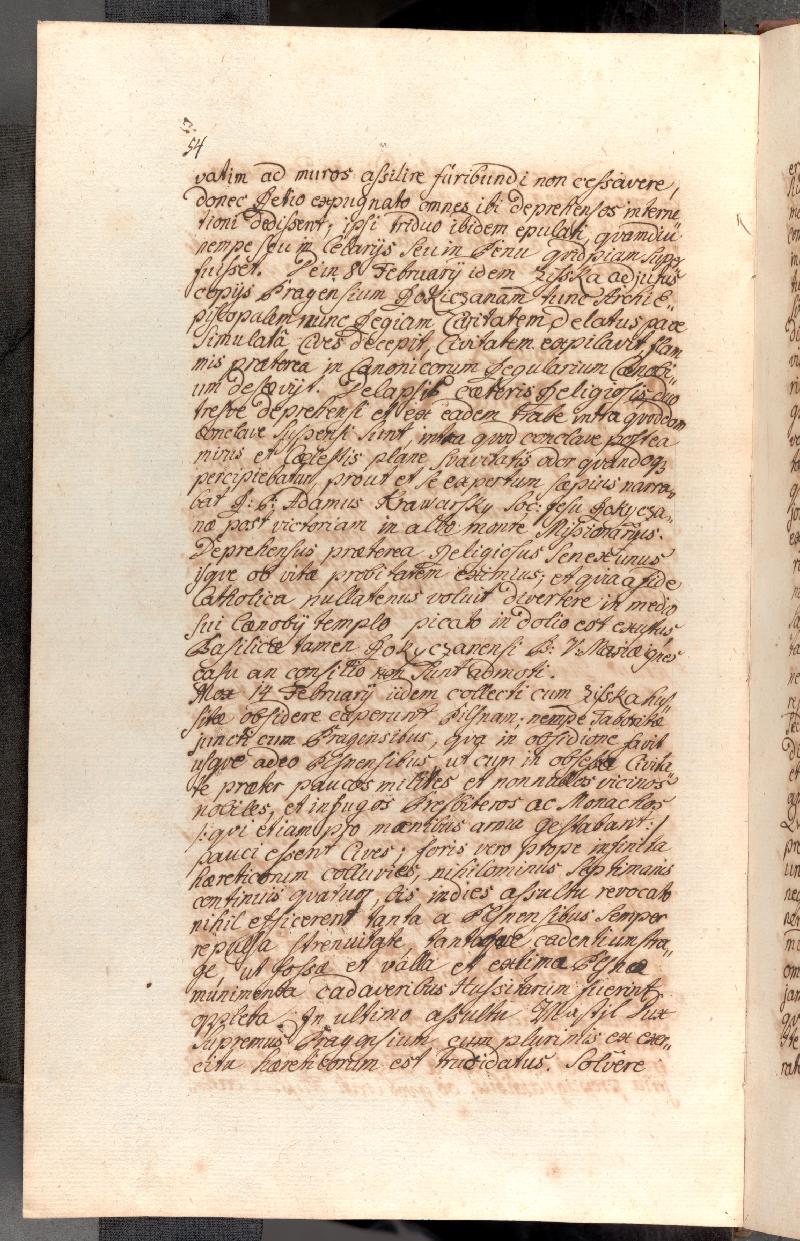 54
vatim ad muros assilire furibundi non cessavere,
donec Petio expugnato omnes ibi deprehensos interne
tioni dedissent, ipsi triduo ibidem epulati quamdiu
nempe seu in Cellarijs seu in Penu quidpiam super
fuisset. Dein 8 Februarij idem Ziska adjutus
copijs Pragensium Rokiczanam tunc Archi E„
piscopalem nunc Regiam Civitatem delatus pace
simulatâ Cives decepit, Civitatem expilavit flam
mis præterea in Canonicorum Regularium Cænobi„
um desævijt. Delapsis cæteris Religiosis duo
tresve deprehensi et ex eadem trabe intra quoddam
conclave suspensi sunt, intra quod conclave postea
mirus et Cælestis plane suavitatis odor quandoq3
percipiebatur, prout et se expertum sæpius narra„
bat R: P: Adamus Krawarsky Soc: Jesu Rokycza„
næ post victoriam in albo monte Missionarius.
Deprehensus præterea Religiosus Senex unus
isque ob vitæ probitatem eximius, et quia a fide
Catholica nullatenus voluit divertere in medio
sui Cænobij templo picato in dolio est exutus
Basilicæ tamen Rokyczanensi B: V: Mariæ ignes
casu an consilio non sunt admoti.
Mox 14 Februarij iidem collecti cum Ziska hus„
sitæ obsidere cæperunt Pilsnam, nempe Taboritæ
juncti cum Pragensibus, qua in obsidione favit
usque adeo Pilsnensibus, ut cum in obsessa Civita
te præter paucos milites et nonnullos vicinos
nobiles, et infugos Presbiteros ac Monachos
/: qui etiam pro mænibus arma gestabant :/
pauci essent Cives; foris vero prope infinita
hæreticorum colluvies, nihilominus Septimanis
continuis quatuor, bis indies assultu revocato
nihil efficerent tanta a Pilsnensibus semper
repulsa strenuitate, tantaque cadentium stra„
ge ut fossæ et valla et extima Pilsnæ
munimenta cadaveribus Hussitarum fuerint
oppleta. In ultimo assultu Dux
supremus Pragensium cum plurimis ex exer„
citu hæreticorum est trucidatus. Solvere